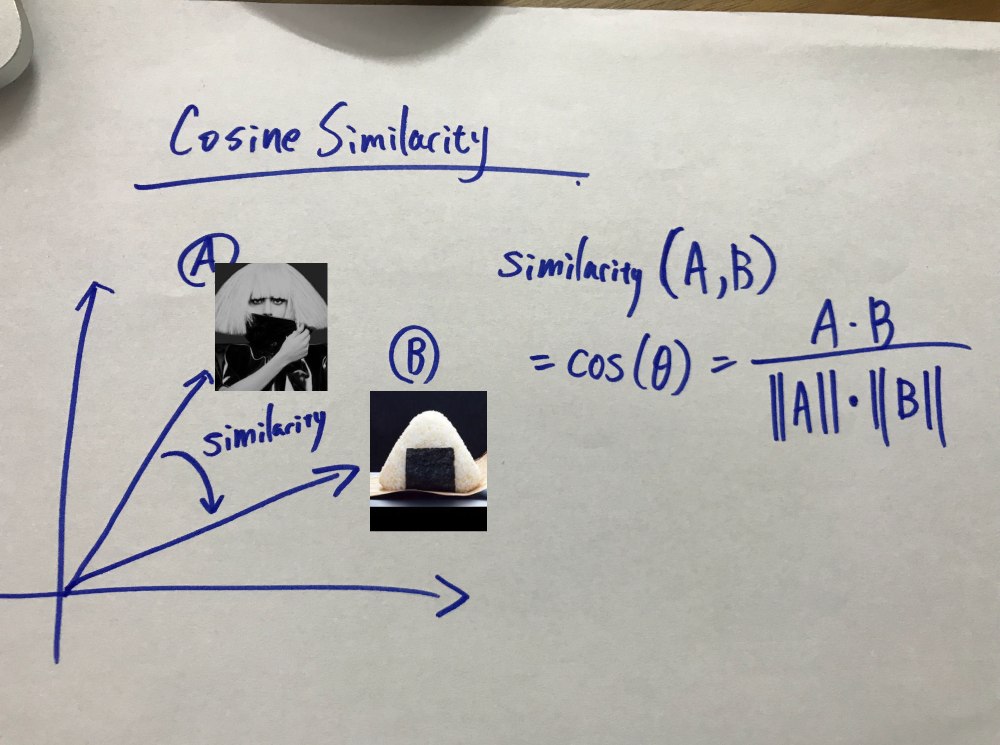 Cosine Similarity
A
B
similarity
similarity (A,B)
= cos(θ) = A · B / ||A|| · ||B||